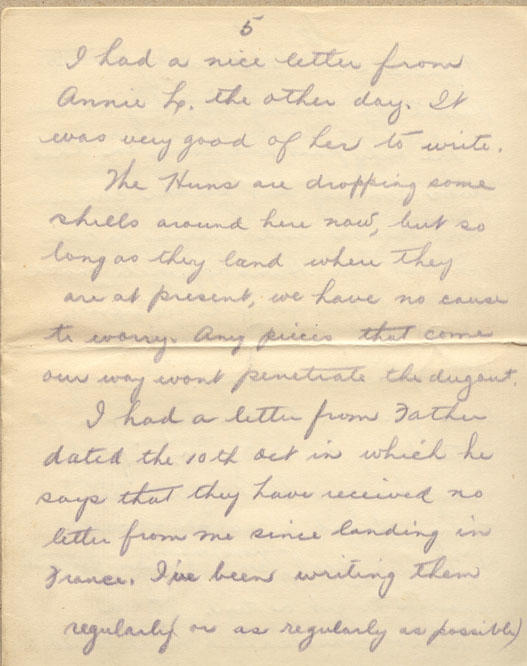 5
I had a nice letter from
Annie L. the other day. It
was very good of her to write.
The Huns are dropping some
shells around here now, but so
long as they land where they
are at present, we have no cause
to worry. Any pieces that come
our way wont penetrate the dugout.
I had a letter from Father
dated the 10th Oct in which he
says that they have received no
letter from me since landing in
France. I've been writing them
regularly or as regularly as possible)